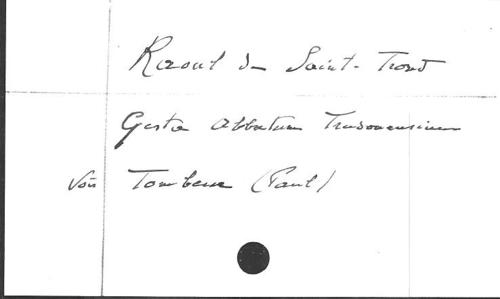 Raoul de Saint-Trond
Gesta Abbatum Trudonensium
Voir Tombeur (Paul)